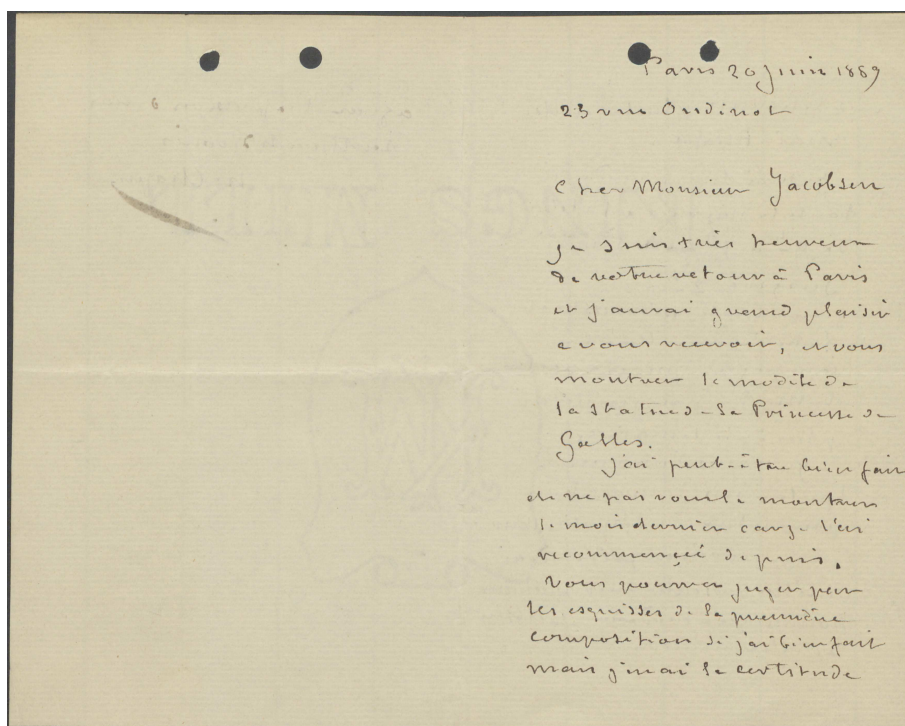 Paris 20 Juin 1889
23 rue Oudinot
Cher Monsieur Jacobsen
je suis très heureux
de votre retour à Paris
et j'aurai grand plaisir
a vous recevoir, et vous
montrer le modèle de
la statue de la Princesse de
Galles.
j'ai peut-être bien fait
de ne pas vous le montrer
le mois dernier car je l'ai
recommencé depuis.
Vous pourrez juger par
les esquisses de la première
composition si j'ai bien fait
mais j'en ai la certitude